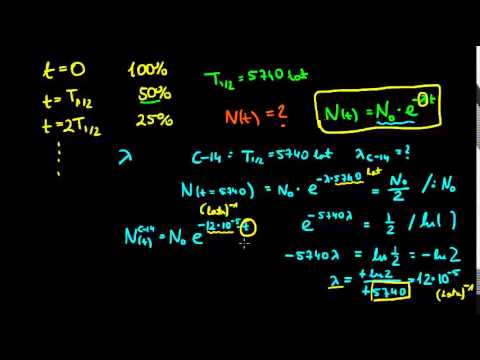 t = 0 100%
t = T₁/₂ 50%
t = 2T₁/₂ 25%
⋮
T₁/₂ = 5740 lat
N(t) = ?
N(t) = N₀ · e^(-λt)
λ
C-14 : T₁/₂ = 5740 lat λ_C-14 = ?
N(t = 5740) = N₀ · e^(-λ·5740 lat) = N₀/2 /: N₀
(lata)⁻¹
N^C-14(t) = N₀ e^(-12·10⁻⁵ t)
e^(-5740λ) = 1/2 / ln( )
-5740λ = ln 1/2 = -ln 2
λ = +ln2/+5740 = 12·10⁻⁵
(lata)⁻¹